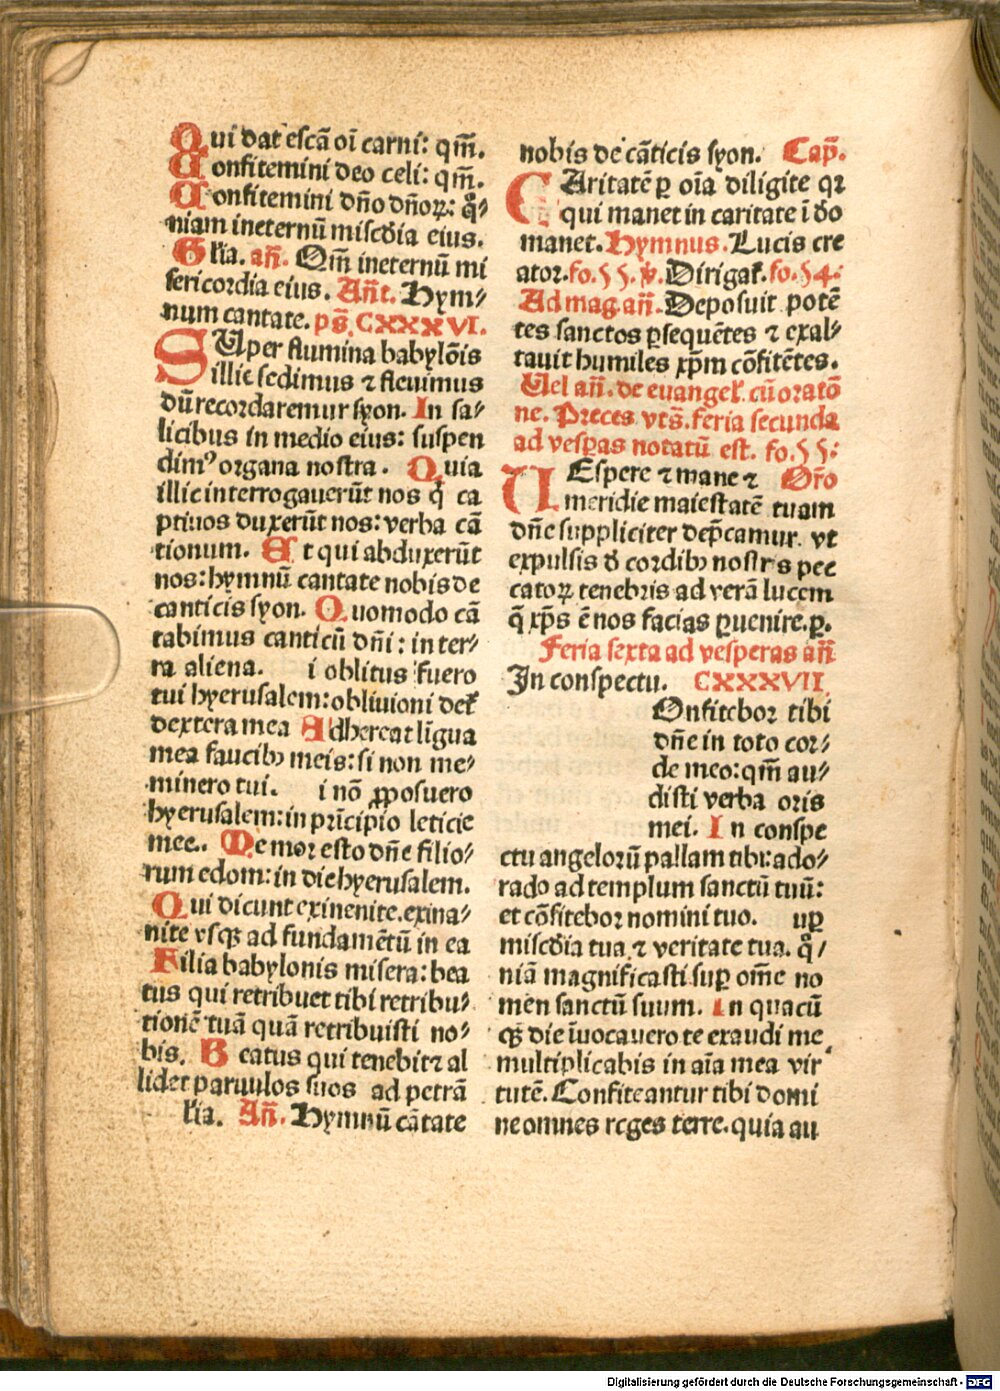 Qui dat escā oī carni: qm̄.
Confitemini deo celi: qm̄.
Confitemini dn̄o dn̄oꝝ: qͦ⸗
niam ineternū misc̄dia eius.
Gl̄ia. an̄. Qm̄ ineternū mi
sericordia eius. An̄t. Hym⸗
num cantate. ps̄. CXXXVI.
SUper flumina babylōis
illic sedimus ⁊ fleuimus
dū recordaremur syon. In sa⸗
licibus in medio eius: suspen
dimꝰ organa nostra. Quia
illic interrogauerūt nos q̇ ca
ptiuos duxerūt nos: verba cā
tionum. Et qui abduxerūt
nos: hymnū cantate nobis de
canticis syon. Quomodo cā
tabimus canticū dn̄i: in ter⸗
ra aliena. i oblitus fuero
tui hyerusalem: obliuioni det᷑
dextera mea Adhereat līgua
mea faucibꝫ meis: si non me⸗
minero tui. i nō ꝓposuero
hyerusalem: in prīcipio leticie
mee.. Memor esto dn̄e filio⸗
rum edom: in die hyerusalem.
Qui dicunt exinenite. exina⸗
nite vsqꝫ ad fundamētū in ea
Filia babylonis misera: bea
tus qui retribuet tibi retribu⸗
tionē tuā quā retribuisti no⸗
bis. Beatus qui tenebit ⁊ al
lidet paruulos suos ad petrā
l̄ia. An̄. Hymnū cātate
nobis de cāticis syon. Cap̄.
CAritatē ꝑ oīa diligite qꝛ
qui manet in caritate ī do
manet. Hymnus. Lucis cre
ator. fo. 55. ꝟ. Dirigat᷑. fo. 54:
Ad mag. an̄. Deposuit potē
tes sanctos ꝑsequētes ⁊ exal⸗
tauit humiles xp̄m cōfitētes.
Uel an̄. de euangel̄. cū oratō
ne. Preces vts̄. feria secunda
ad vesꝑas notatū est. fo. 55:
UEspere ⁊ mane ⁊ Or̄o
meridie maiestatē tuam
dn̄e suppliciter dep̄camur. vt
expulsis d̄ cordibꝫ nostrs pec
catoꝝ tenebris ad verā lucem
q̄ xp̄s ē nos facias ꝑuenire. ꝑ.
Feria sexta ad vesperas an̄
In conspectu. CXXXVII
Onfitebor tibi
dn̄e in toto cor⸗
de meo: qm̄ au⸗
disti verba oris
mei. In conspe
ctu angelorū psallam tibi: ado⸗
rabo ad templum sanctū tuū:
et cōfitebor nomini tuo. uꝑ
misc̄dia tua ⁊ veritate tua. qͦ⸗
niā magnificasti suꝑ om̄e no
men sanctū suum. In quacū
qꝫ die īuocauero te exaudi me
multiplicabis in aīa mea vir
tutē. Confiteantur tibi domi
ne omnes reges terre. quia au
Digitalisierung gefördert durch die Deutsche Forschungsgemeinschaft - DFG